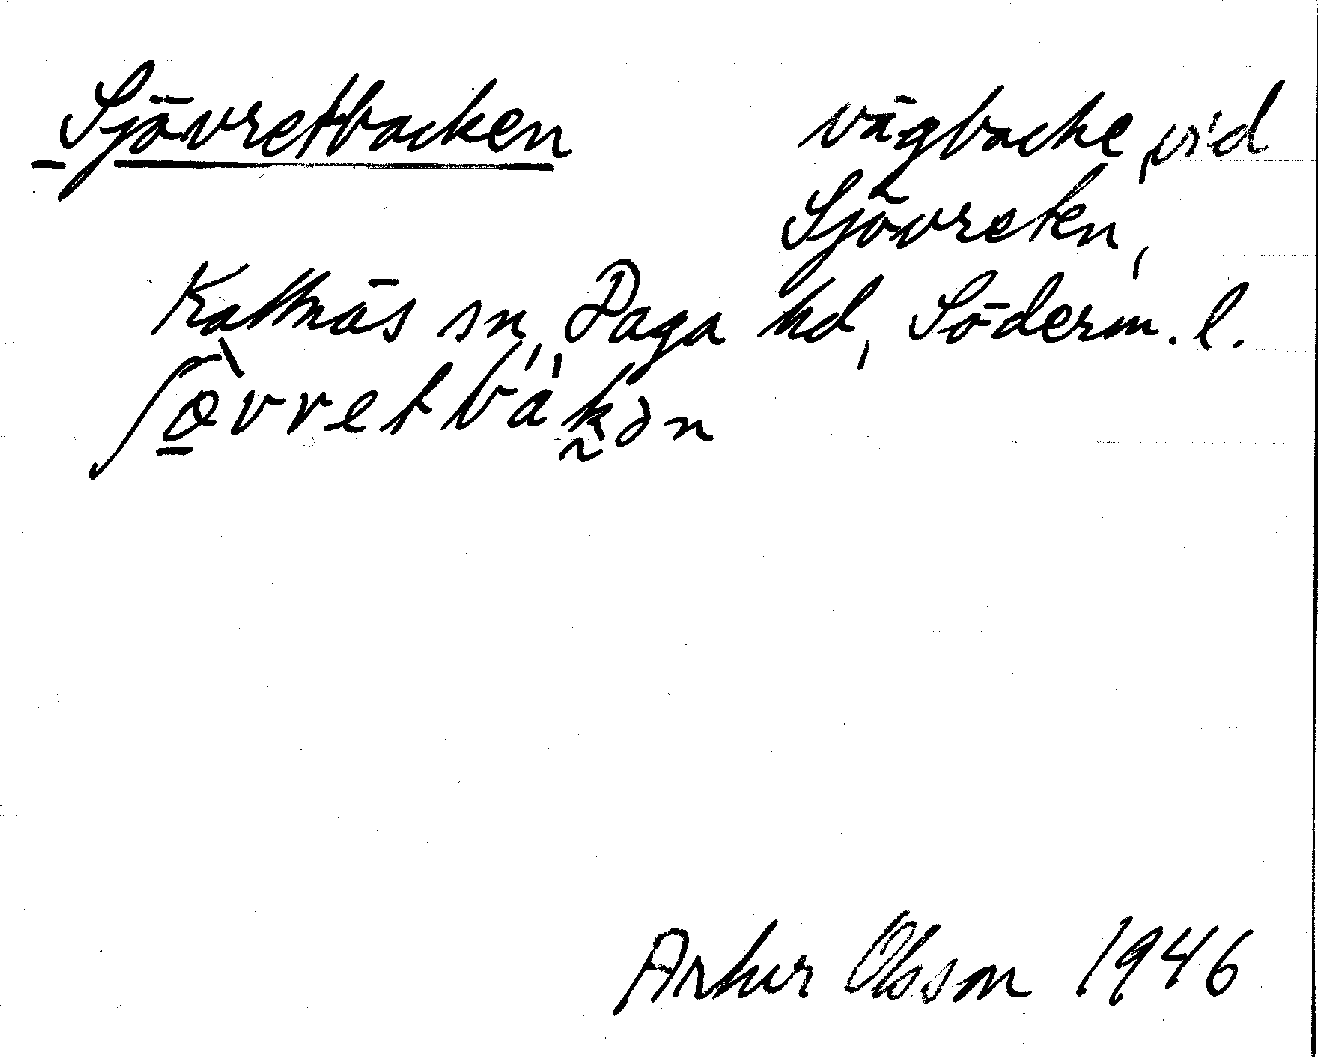 Sjövretbacken vägbacke, vid
Sjövreten,
Kattnäs sn, Daga hd, Söderm. l.
Artur Olsson 1946